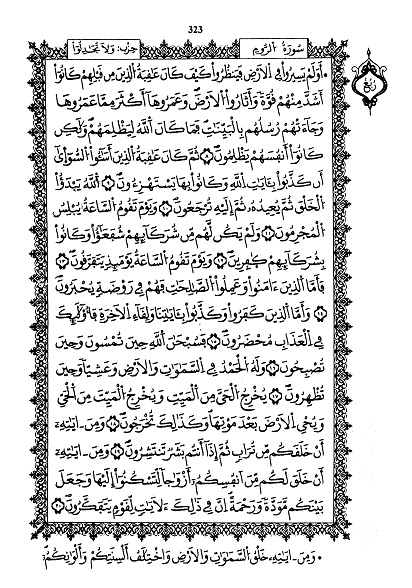 323
سُورَةُ الرُّومِ
حِزْب: وَلَا تُجَٰدِلُوٓاْ
رُبُع
• أَوَلَمْ يَسِيرُواْ فِي الْأَرْضِ فَيَنظُرُواْ كَيْفَ كَانَ عَٰقِبَةُ الَّذِينَ مِن قَبْلِهِمْ كَانُوٓاْ
أَشَدَّ مِنْهُمْ قُوَّةً وَأَثَارُواْ الْأَرْضَ وَعَمَرُوهَآ أَكْثَرَ مِمَّا عَمَرُوهَا
وَجَآءَتْهُمْ رُسُلُهُم بِالْبَيِّنَٰتِ فَمَا كَانَ اللَّهُ لِيَظْلِمَهُمْ وَلَٰكِن
كَانُوٓاْ أَنفُسَهُمْ يَظْلِمُونَ ثُمَّ كَانَ عَٰقِبَةُ الَّذِينَ أَسَٰٓـُٔواْ السُّوٓأَىٰٓ
أَن كَذَّبُواْ بِـَٔايَٰتِ اللَّهِ وَكَانُواْ بِهَا يَسْتَهْزِءُونَ اللَّهُ يَبْدَؤُاْ
الْخَلْقَ ثُمَّ يُعِيدُهُۥ ثُمَّ إِلَيْهِ تُرْجَعُونَ وَيَوْمَ تَقُومُ السَّاعَةُ يُبْلِسُ
الْمُجْرِمُونَ وَلَمْ يَكُن لَّهُم مِّن شُرَكَآئِهِمْ شُفَعَٰٓؤُاْ وَكَانُواْ
بِشُرَكَآئِهِمْ كَٰفِرِينَ وَيَوْمَ تَقُومُ السَّاعَةُ يَوْمَئِذٍ يَتَفَرَّقُونَ
فَأَمَّا الَّذِينَ ءَامَنُواْ وَعَمِلُواْ الصَّٰلِحَٰتِ فَهُمْ فِي رَوْضَةٍ يُحْبَرُونَ
وَأَمَّا الَّذِينَ كَفَرُواْ وَكَذَّبُواْ بِـَٔايَٰتِنَا وَلِقَآءِ الْأَخِرَةِ فَأُوْلَٰٓئِكَ
فِي الْعَذَابِ مُحْضَرُونَ فَسُبْحَٰنَ اللَّهِ حِينَ تُمْسُونَ وَحِينَ
تُصْبِحُونَ وَلَهُ الْحَمْدُ فِي السَّمَٰوَٰتِ وَالْأَرْضِ وَعَشِيًّا وَحِينَ
تُظْهِرُونَ يُخْرِجُ الْحَيَّ مِنَ الْمَيِّتِ وَيُخْرِجُ الْمَيِّتَ مِنَ الْحَيِّ
وَيُحْيِ الْأَرْضَ بَعْدَ مَوْتِهَا وَكَذَٰلِكَ تُخْرَجُونَ وَمِنَ ءَايَٰتِهِۦٓ
أَنْ خَلَقَكُم مِّن تُرَابٍ ثُمَّ إِذَآ أَنتُم بَشَرٌ تَنتَشِرُونَ وَمِنَ ءَايَٰتِهِۦٓ
أَنْ خَلَقَ لَكُم مِّنَ أَنفُسِكُمْ أَزْوَٰجًا لِّتَسْكُنُوٓاْ إِلَيْهَا وَجَعَلَ
بَيْنَكُم مَّوَدَّةً وَرَحْمَةً إِنَّ فِي ذَٰلِكَ لَأَيَٰتٍ لِّقَوْمٍ يَتَفَكَّرُونَ
• وَمِنَ ءَايَٰتِهِۦ خَلْقُ السَّمَٰوَٰتِ وَالْأَرْضِ وَاخْتِلَٰفُ أَلْسِنَتِكُمْ وَأَلْوَٰنِكُمْ